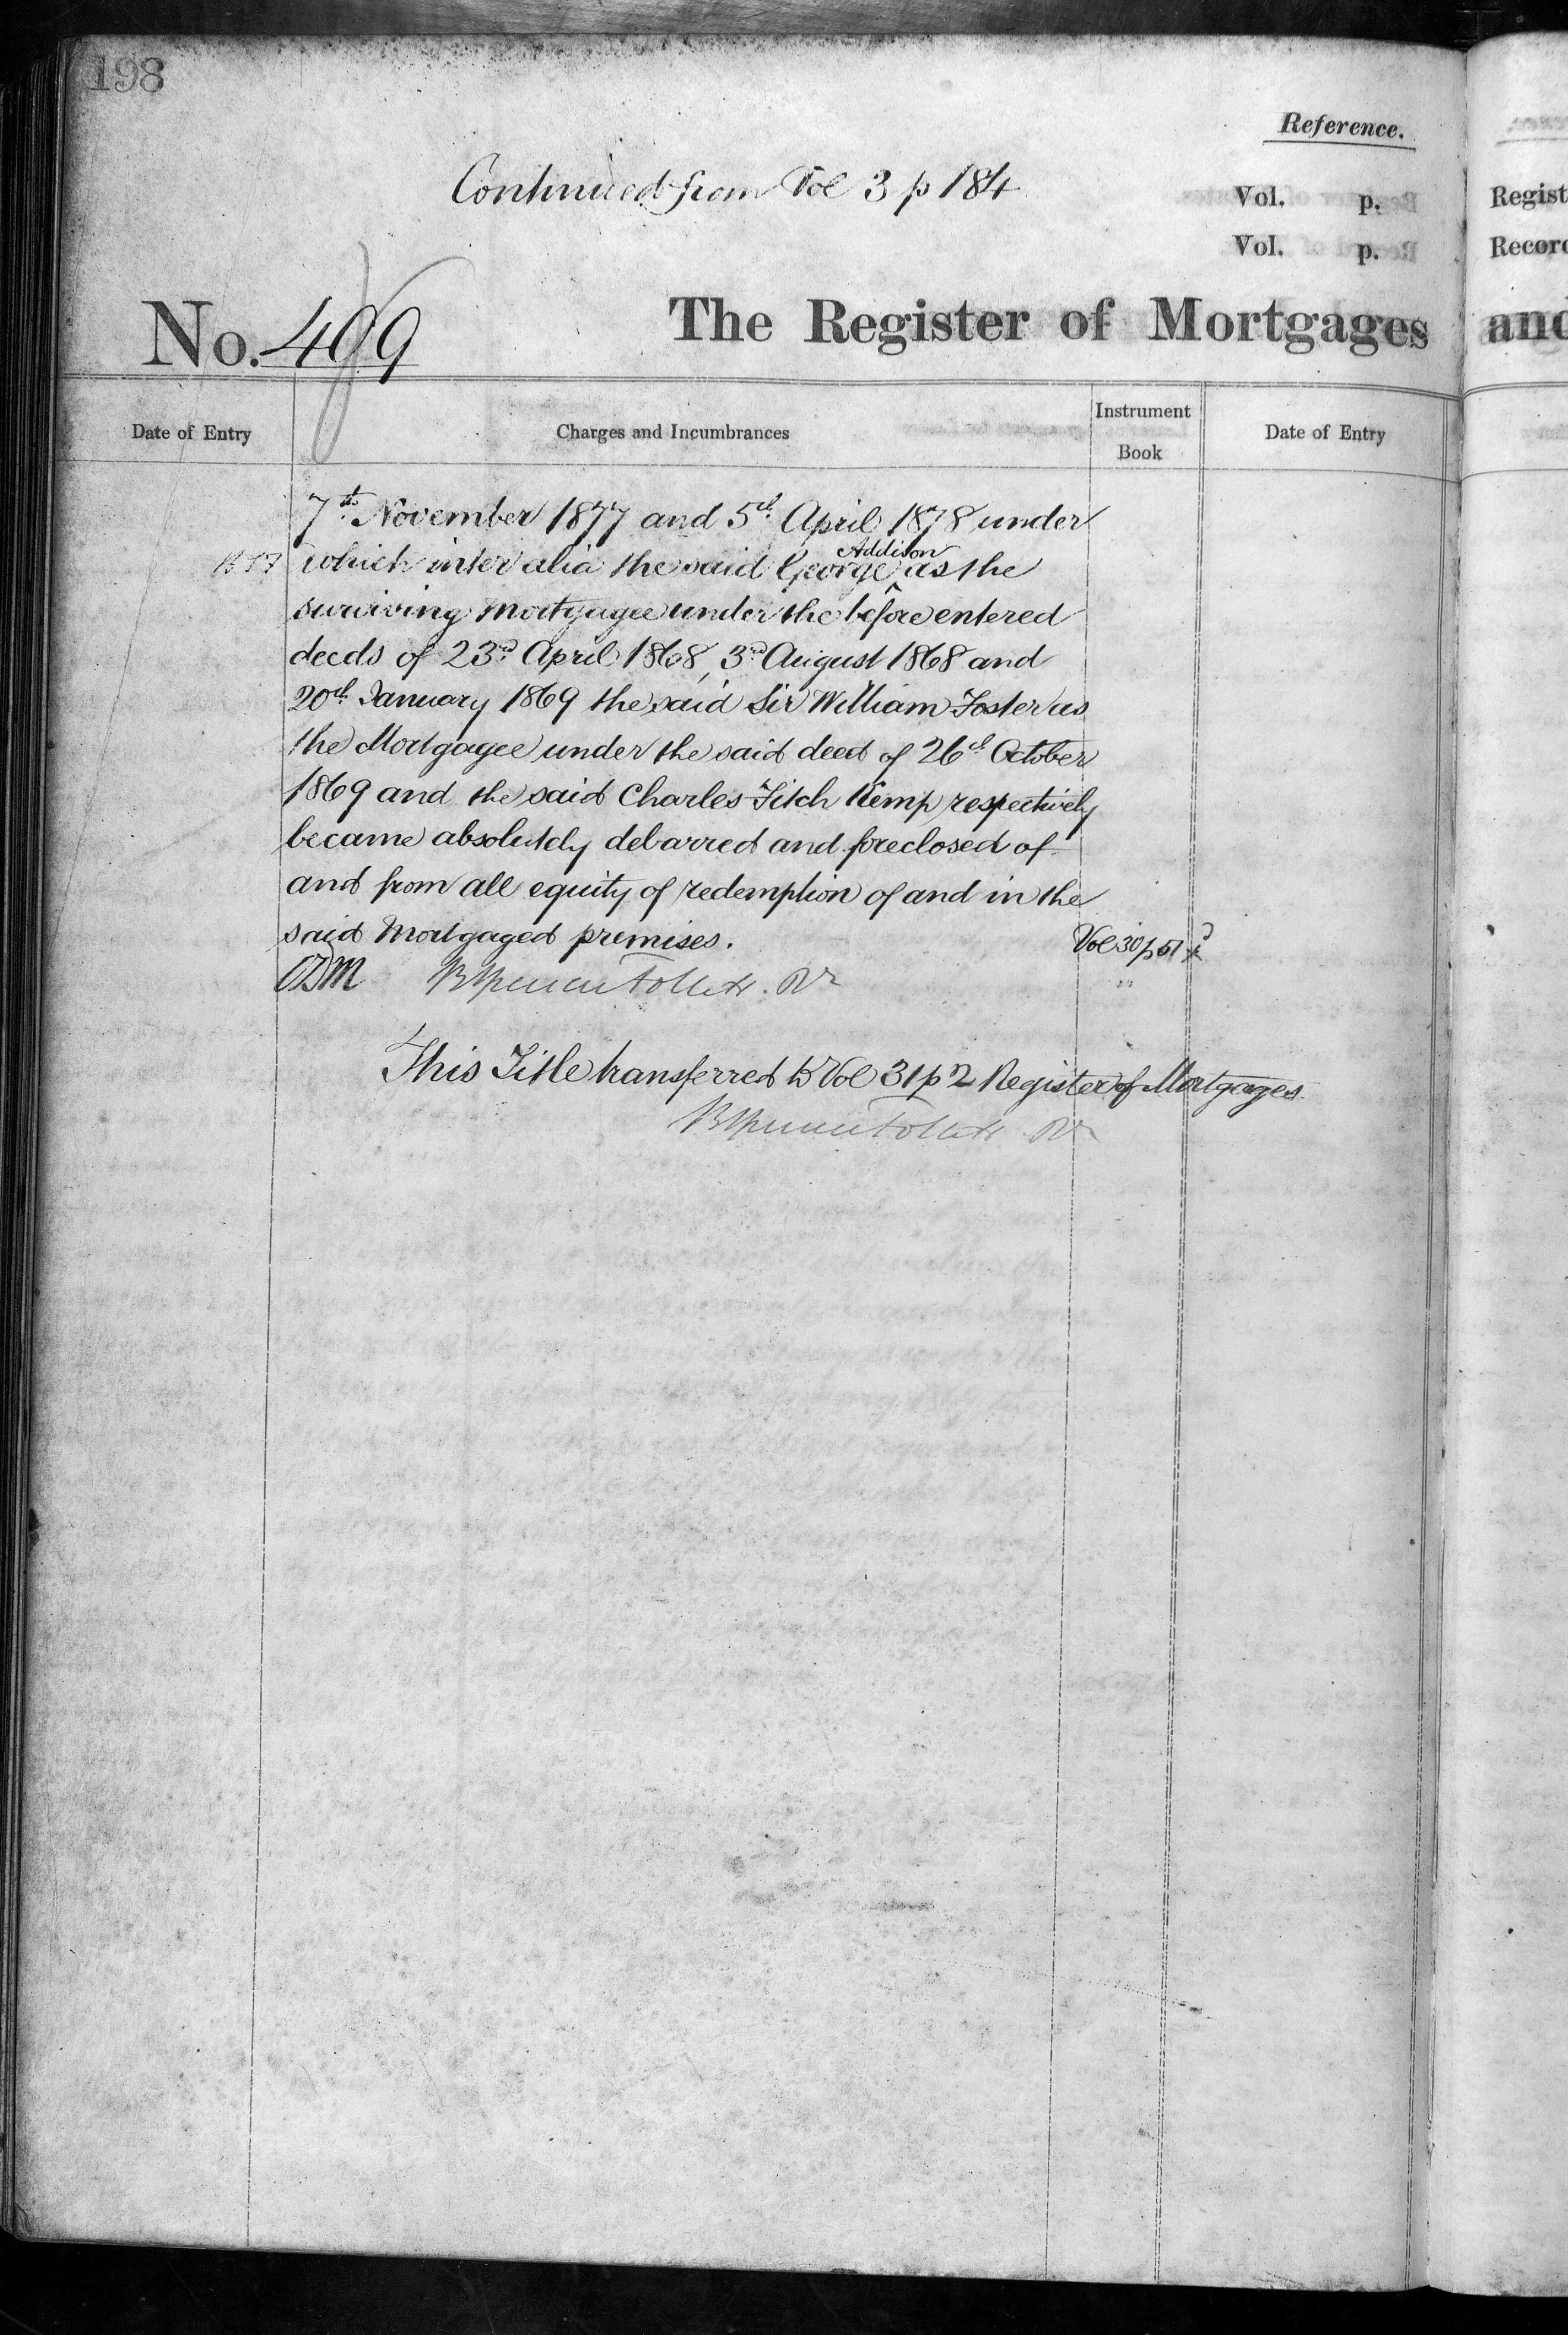 198
Reference.
Continued from Vol 3 p 184
Vol. p.
Vol. p.
Regist
Record
No. 499
The Register of Mortgages and
Date of Entry
Charges and Incumbrances
Instrument
Book
Date of Entry
7th November 1877 and 5th April 1878 under
Addison
which inter alia the said George ^ as the
surviving Mortgagee under the before entered
deeds of 23rd April 1868, 3rd August 1868 and
20th January 1869 the said Sir William Foster as
the Mortgagee under the said deed of 26th October
1869 and the said Charles Fitch Kemp respectively
became absolutely debarred and foreclosed of
and from all equity of redemption of and in the
said Mortgaged premises.
Vol 30 p
This Title transferred to Vol 31 p 2 Register of Mortgages.